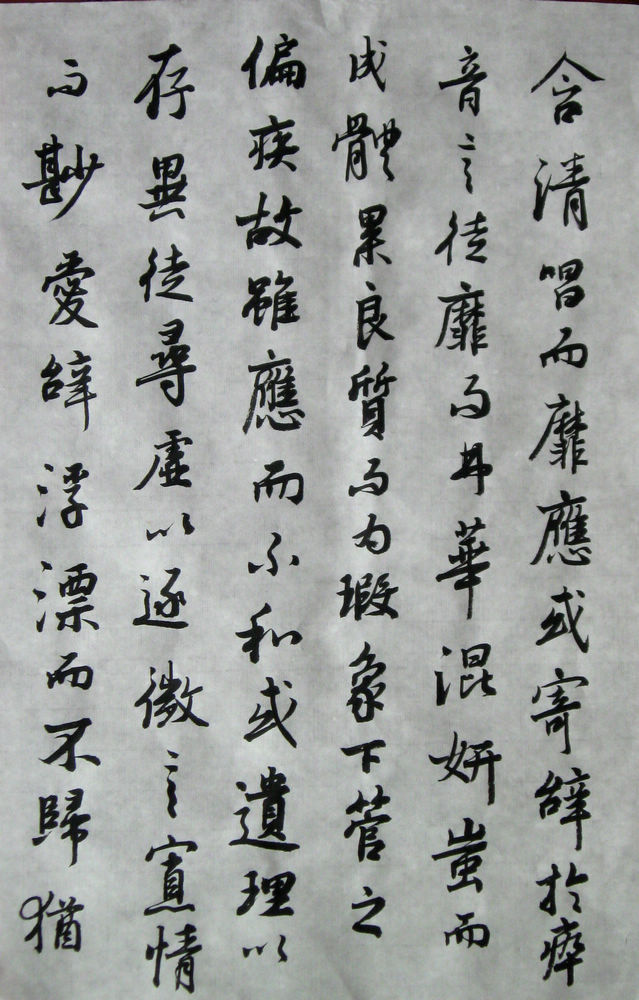 含清唱而靡應或寄辭於瘁
音言徒靡而弗華混妍蚩而
成體累良質而為瑕象下管之
偏疾故雖應而不和或遺理以
存異徒尋虛以逐微言寡情
而尠愛辭浮漂而不歸猶